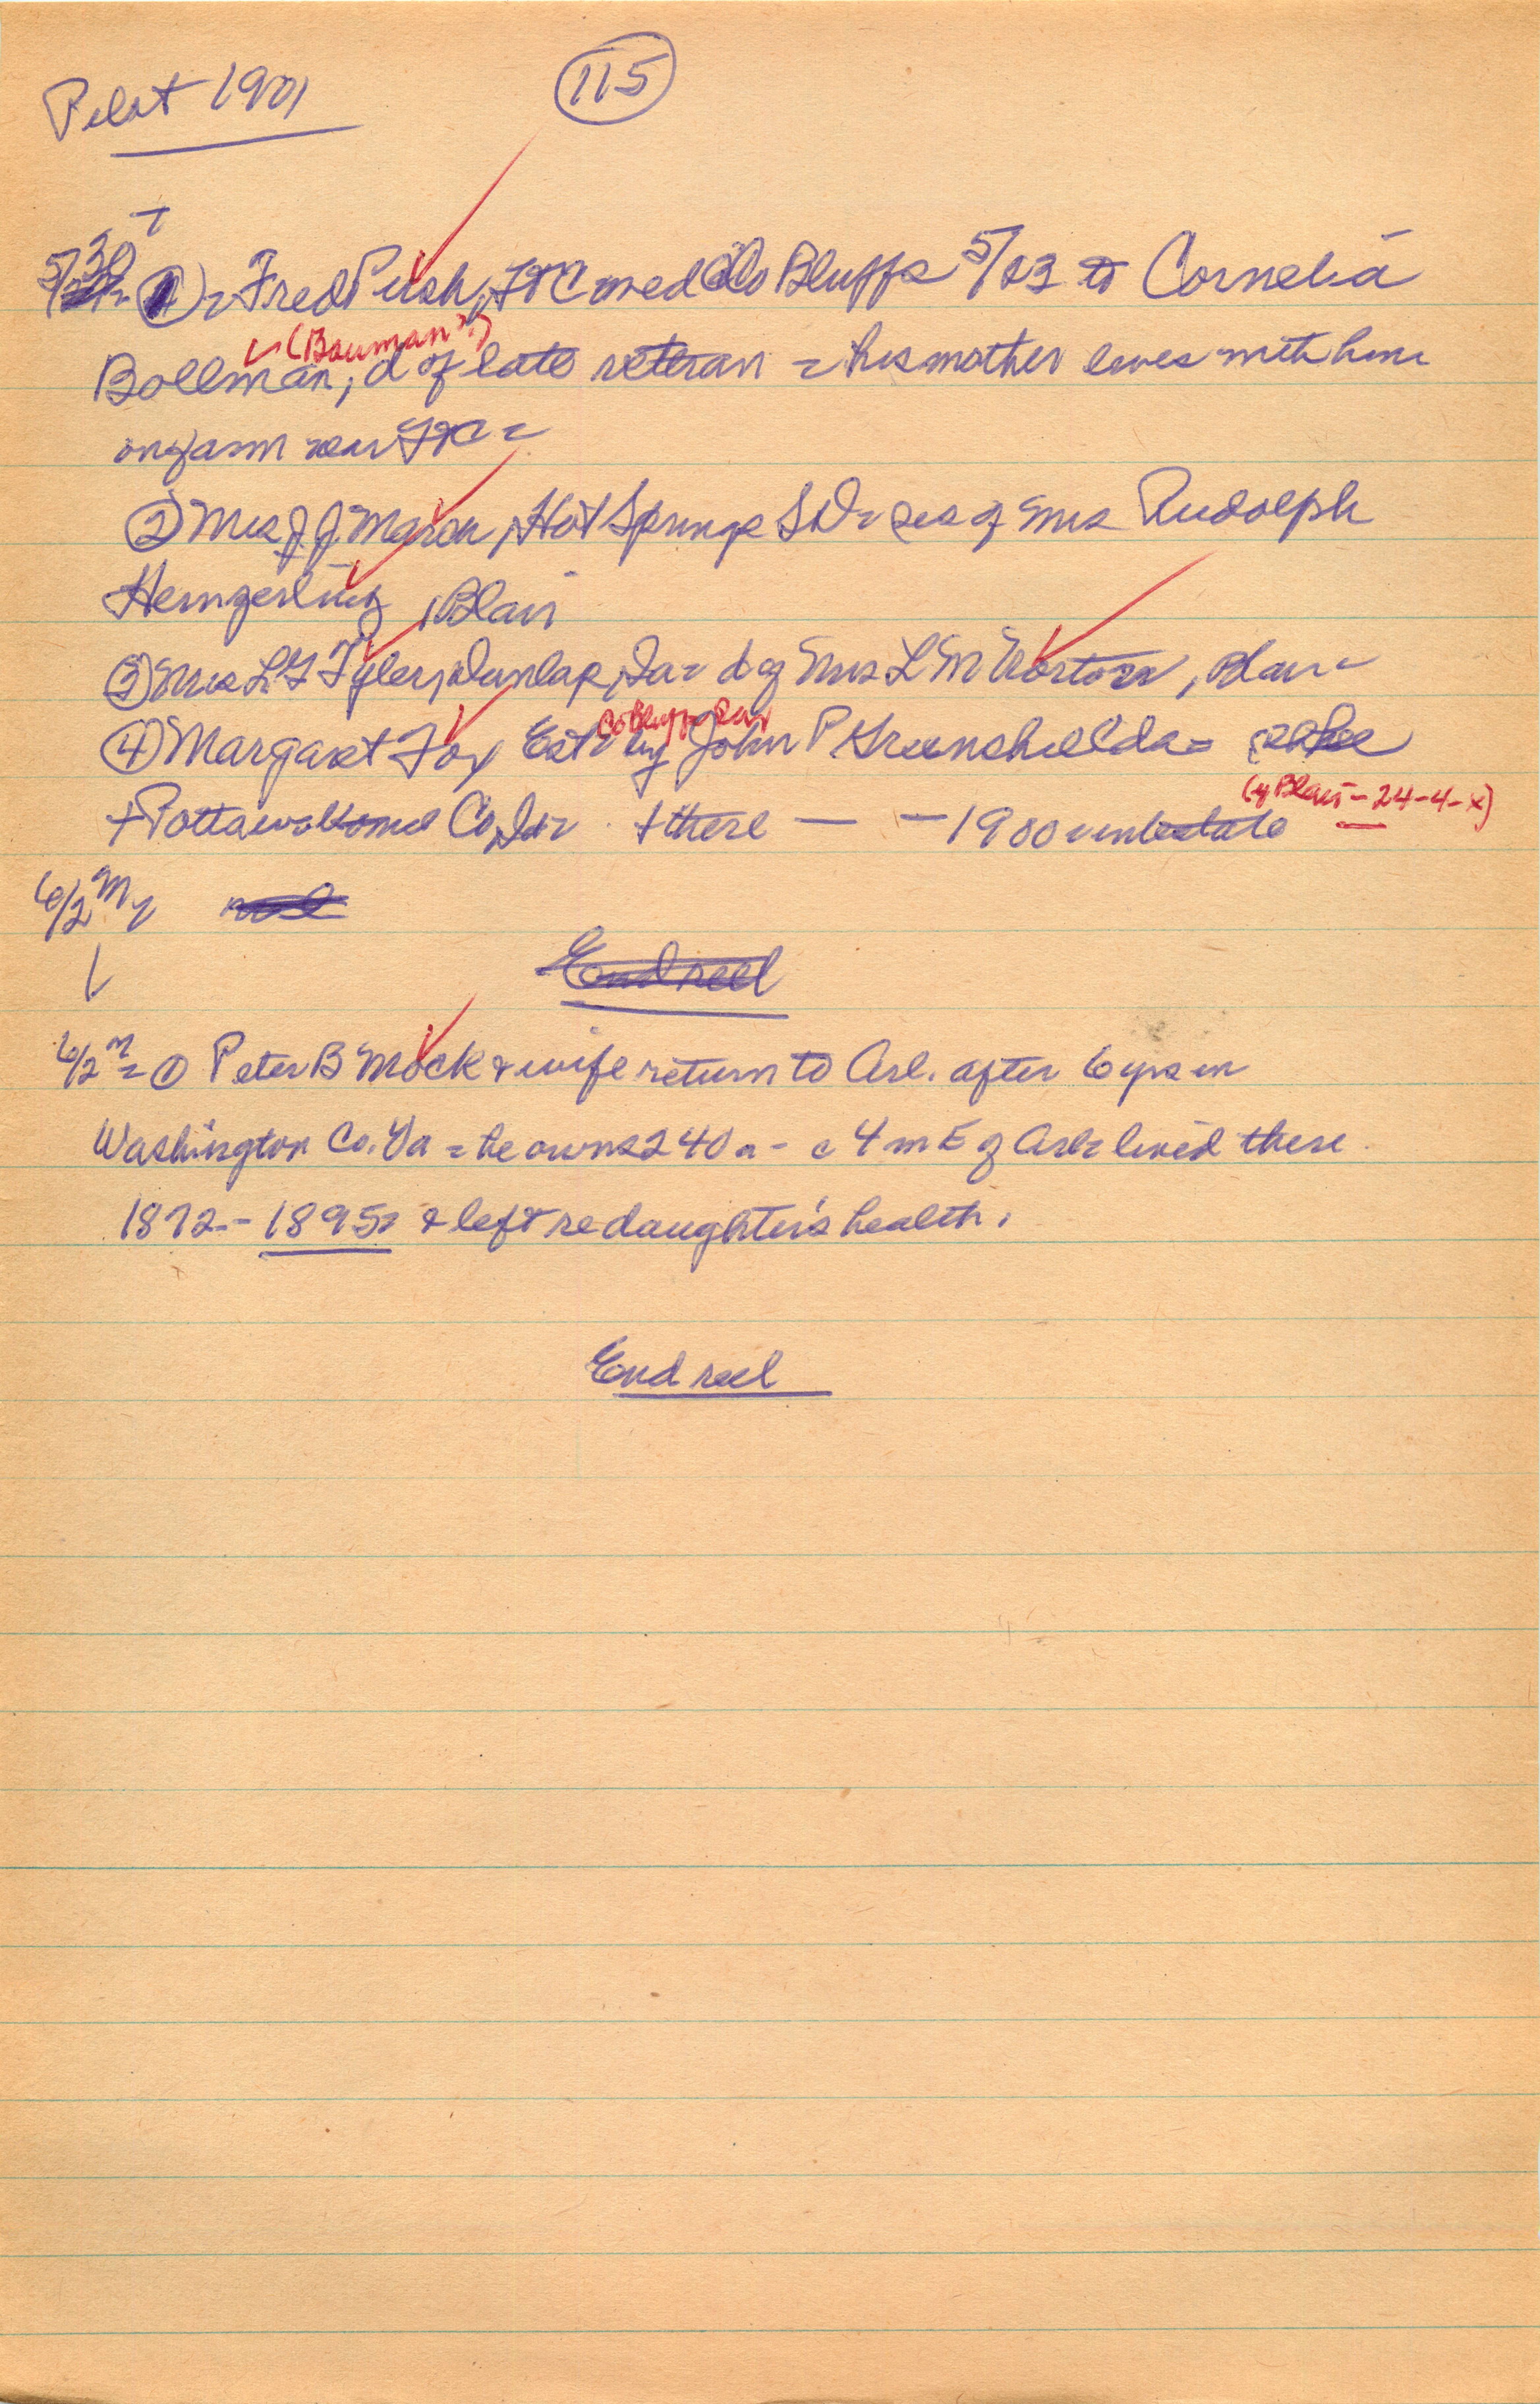 Pilot 1901
115
T
5/30 = ① = Fred Push, FtC med Co Bluffs 5/23 to Cornelia
(Bauman?)
Bollman, d of late veteran = his mother lives with him
on farm near FtC =
② Mrs J J March, Hot Springs SD = sis of Mrs Rudolph
Hemgerling, Blair
③ Mrs L G Tyler, Dunlap, Ia = d of Mrs L M Worton, Blair =
Co Bluffs
④ Margaret Fox Est = by John P Greenshields =
(of Blair - 24-4-X)
+ Pottawattomie Co, Ia = + there — — 1900 intestate
6/2 M =
End reel
6/2 M = ① Peter B Mock & wife return to Arl. after 6 yrs in
Washington Co. Va = he owns 240 a - c 4 m E of Arl = lived there
1872 - 1895 = & left re daughter's health.
End reel